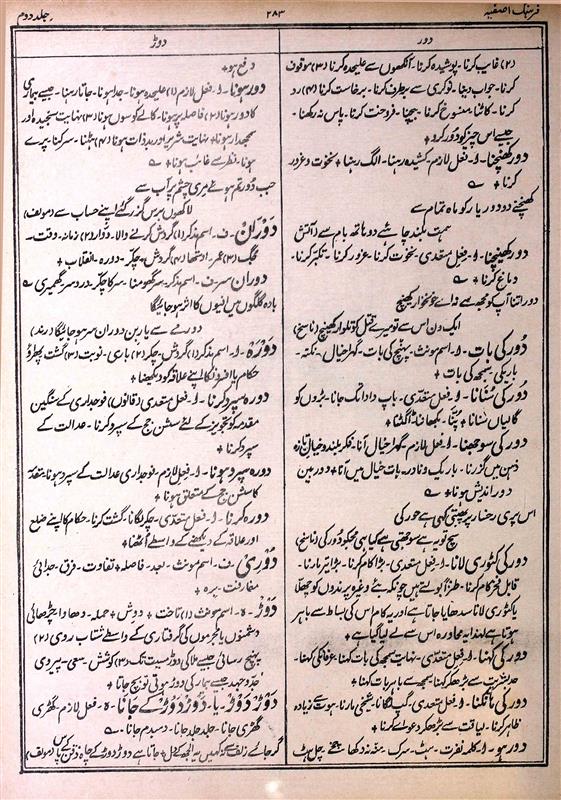 فرہنگ آصفیہ
۲۸۳
جلد دوم
دور
(۲) غایب کرنا۔ پوشیدہ کرنا۔ آنکھوں سے علیحدہ کرنا (۳) موقوف
کرنا۔ جواب دینا۔ نوکری سے برطرف کرنا۔ برخاست کرنا (۴) رد
کرنا۔ کاٹنا۔ منسوخ کرنا۔ بیچنا۔ فروخت کرنا۔ پاس نہ رکھنا۔
جیسے اس چیز کو دُور کرو +
دور کھنچنا۔ ا۔ فعل لازم۔ کشیدہ رہنا۔ الگ رہنا + نخوت و غرور
کرنا + ؎
کھنچئے دو دور یار کو ماہ تمام سے
ہمت بلند چاہئے دو ہاتھ بام سے (آتش)
دور کھینچنا۔ ا۔ فعل متعدی۔ نخوت کرنا۔ غرور کرنا۔ تکبر کرنا۔
دماغ کرنا + ؎
دور اتنا آپ کو مجھ سے نہ اے خونخوار کھینچ
ایک دن اس سے تو میرے قتل کو تلوار کھینچ (ناسخ)
دُور کی بات۔ ا۔ اسم مونث۔ پہنچ کی بات۔ گہرا خیال۔ نکتہ۔
باریکی۔ سمجھ کی بات +
دُور کی سُنانا۔ ا۔ فعل متعدی۔ باپ دادا تک جانا۔ بڑوں کو
گالیاں سُنانا + پُنّنا۔ بکھاننا۔ اُگٹنا +
دور کی سوجھنا۔ ا۔ فعل لازم۔ گہرا خیال آنا۔ فکر بلند و خیال تازہ
ذہن میں گزرنا۔ باریک و نادر بات خیال میں آنا + دور بین
دور اندیش ہونا + ؎
اس پری رخسار پر پھبتی کہی ہے حور کی
سچ تو یہ ہے سوجھتی ہے کیا ہی مجھکو دُور کی (ناسخ)
دور کی کوڑی لانا۔ ا۔ فعل متعدی۔ بڑا کام کرنا۔ بڑا تیر مارنا۔
قابل فخر کام کرنا۔ طنزاً بولتے ہیں چونکہ بئے وغیرہ پرندوں کو چھلّا
یا کوڑی لانا سدھایا جاتا ہے اور یہ کام اس کی بساط سے باہر
ہوتا ہے لہذا یہ محاورہ اس سے لے لیا گیا ہے +
دور کی کہنا۔ ا۔ فعل متعدی۔ نہایت سمجھ کی بات کہنا۔ عرفانکی کہنا۔
حد بشریت سے بڑھکر کہنا۔ سمجھ سے باہر بات کہنا +
دور کی ہانکنا۔ ا۔ فعل متعدی۔ گپ لگانا۔ شیخی مارنا۔ بوت سے زیادہ
ظاہر کرنا۔ لیاقت سے بڑھکر دعوے کرنا +
دور ہو۔ ا۔ کلمہ نفرت۔ ہٹ۔ سرک۔ مُنہ نہ دکھا۔ چل ہٹ
دوڑ
دفع ہو +
دور ہونا۔ ا۔ فعل لازم (۱) علیحدہ ہونا۔ جدا ہونا۔ جاتا رہنا۔ جیسے بیماری
کا دور ہونا (۲) فاصلہ پر ہونا۔ کالے کوسوں ہونا (۳) نہایت سنجیدہ اور
سمجھدار ہونا + نہایت شریر اور بد ذات ہونا (۴) ہٹنا۔ سرکنا۔ پرے
ہونا۔ نظر سے غائب ہونا + ؎
جب دُور تم ہوئے مری چشم پُر آب سے
لاکھوں برس گزر گئے اپنے حساب سے (مولف)
دَوَران۔ ف۔ اسم مذکر (۱) گردش کرنے والا۔ دوّار (۲) زمانہ۔ وقت۔
جُگ (۳) عمر۔ اوستھا (۴) گردش۔ چکر۔ دورہ۔ انقلاب +
دوران سر۔ ف۔ اسم مذکر۔ سر گھومنا۔ سر کا چکر۔ درد سر گھمیری ؎
بادہ گلگوں میں افیوں کا اثر ہو جائیگا
دور مے سے یار بن دوران سر ہو جائیگا (رند)
دَورَہ۔ ا۔ اسم مذکر (۱) گردش۔ چکر (۲) باری۔ نوبت (۳) گشت پھرؤ
حکام یا افسروں کا اپنے علاقہ کو دیکھنا +
دورہ سپرد کرنا۔ ا۔ فعل متعدی (قانون) فوجداری کے سنگین
مقدمہ کو تجویز کے لئے سشن جج کے سپرد کرنا۔ عدالت کے
سپرد کرنا +
دورہ سپرد ہونا۔ ا۔ فعل لازم۔ فوجداری عدالت کے سپرد ہونا۔ مقدمہ
کا سشن جج کے متعلق ہونا +
دورہ کرنا۔ ا۔ فعل متعدی۔ چکر لگانا۔ گشت کرنا۔ حکام کا اپنے ضلع
اور علاقہ کے دیکھنے کے واسطے اُٹھنا +
دُوری۔ ف۔ اسم مونث۔ بعد۔ فاصلہ + تفاوت۔ فرق۔ جدائی
مفارقت۔ برہ +
دَوڑ۔ ہ۔ اسم مونث (۱) تاخت + دوش + حملہ۔ دھاوا۔ چڑھائی
دشمنوں یا مجرموں کی گرفتاری کے واسطے شتاب روی (۲)
پہنچ رسائی جیسے ملا کی دوڑ مسیت تک (۳) کوشش۔ سعی۔ پیروی
جدوجہد جیسے بیمار کی دوڑ ہوتی تو بچ جاتا +
دَوڑ دَوڑ۔ یا۔ دَوڑ دَوڑ کے جانا۔ ہ۔ فعل لازم۔ گھڑی
گھڑی جانا۔ جلد جلد جانا۔ دمبدم جانا۔ ؎
گر جائے زلف سے نہ کہیں یہ الجھ کے دل + جاتا ہے دوڑ دوڑ کے چاہ ذقن کے پاس (مولف)